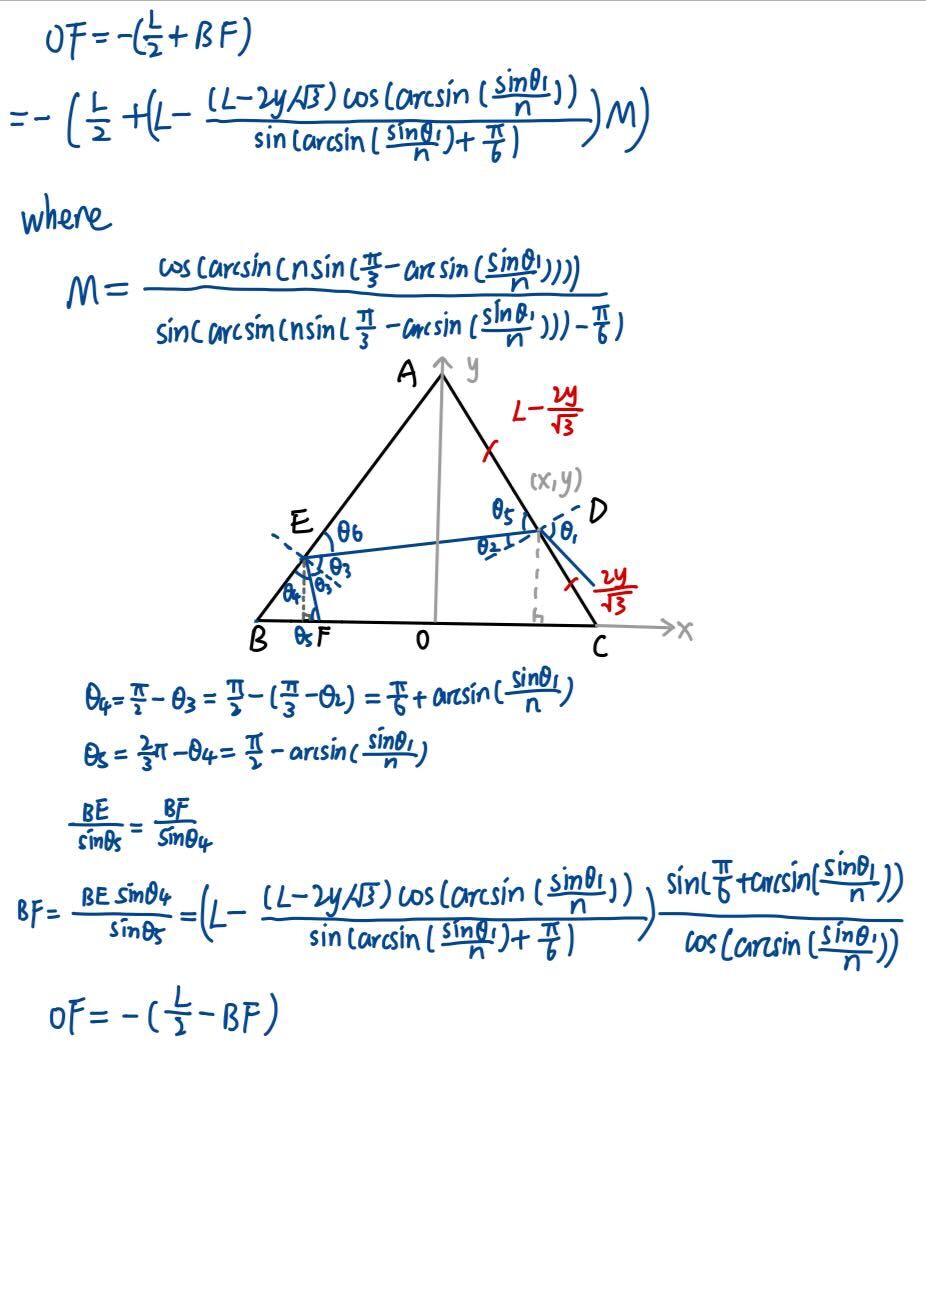 OF = -(L/2 + BF)
= - (L/2 + (L - (L-2y/√3) cos(arcsin(sinθ₁/n)) / sin(arcsin(sinθ₁/n) + π/6)) M)
where
M = cos(arcsin(nsin(π/3 - arcsin(sinθ₁/n)))) / sin(arcsin(nsin(π/3 - arcsin(sinθ₁/n))) - π/6)
A y
L - 2y/√3
(x,y)
E θ6 θ5 D
θ2 θ1
θ3
θ4 θ3
2y/√3
B θ5 F O C x
θ₄ = π/2 - θ₃ = π/2 - (π/3 - θ₂) = π/6 + arcsin(sinθ₁/n)
θ₅ = 2/3 π - θ₄ = π/2 - arcsin(sinθ₁/n)
BE/sinθ₅ = BF/sinθ₄
BF = BE sinθ₄/sinθ₅ = (L - (L-2y/√3) cos(arcsin(sinθ₁/n)) / sin(arcsin(sinθ₁/n) + π/6)) sin(π/6 + arcsin(sinθ₁/n)) / cos(arcsin(sinθ₁/n))
OF = -(L/2 - BF)